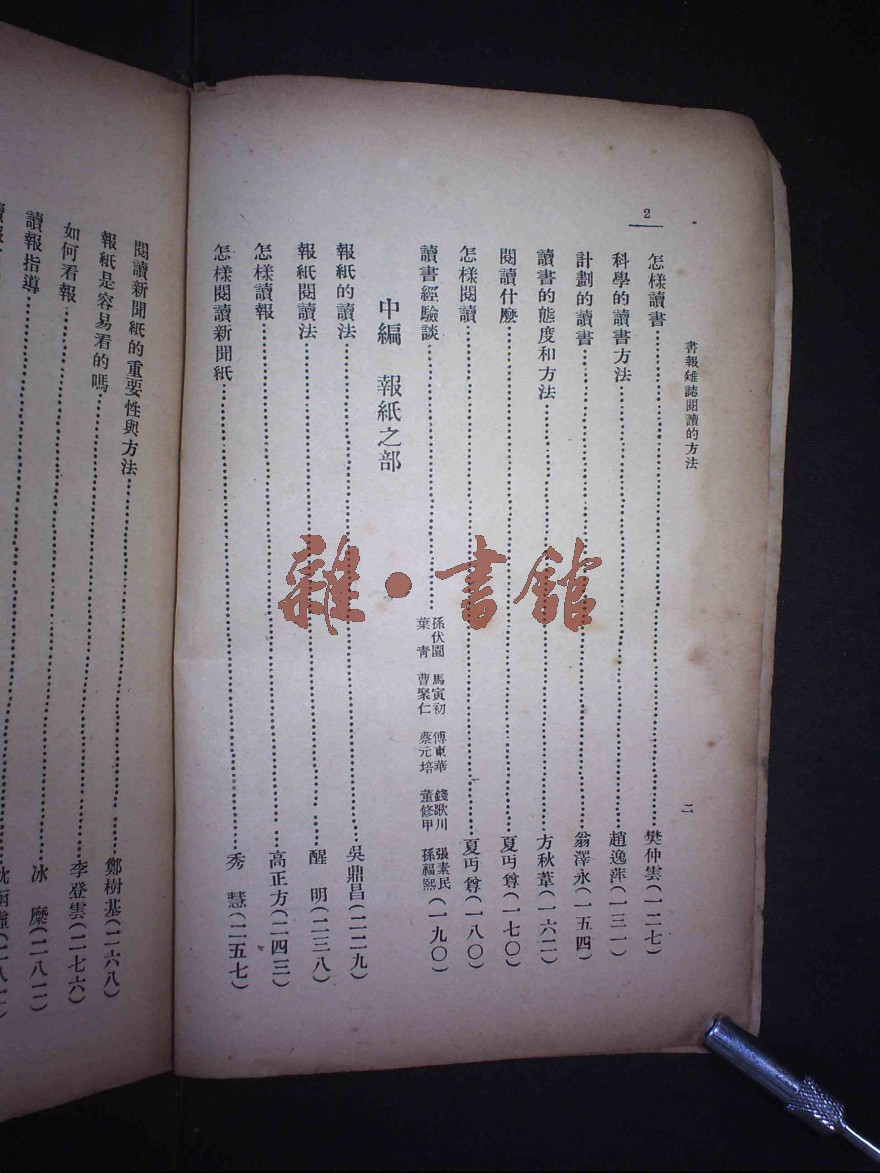 2
書報雜誌閱讀的方法
二
怎樣讀書……樊仲雲(一二七)
科學的讀書方法……趙逸萍(一三一)
計劃的讀書……翁澤永(一五四)
讀書的態度和方法……方秋葦(一六二)
閱讀什麼……夏丏尊(一七〇)
怎樣閱讀……夏丏尊(一八〇)
讀書經驗談……孫伏園 馬寅初 傅東華 錢歌川 張素民
葉青 曹聚仁 蔡元培 董修甲 孫福熙(一九〇)
中編 報紙之部
報紙的讀法……吳鼎昌(二二九)
報紙閱讀法……醒明(二三八)
怎樣讀報……高正方(二四三)
怎樣閱讀新聞紙……秀慧(二五七)
閱讀新聞紙的重要性與方法……鄭樹基(二六八)
報紙是容易看的嗎……李登雲(二七六)
如何看報……冰糜(二八二)
讀報指導……
雜·書館